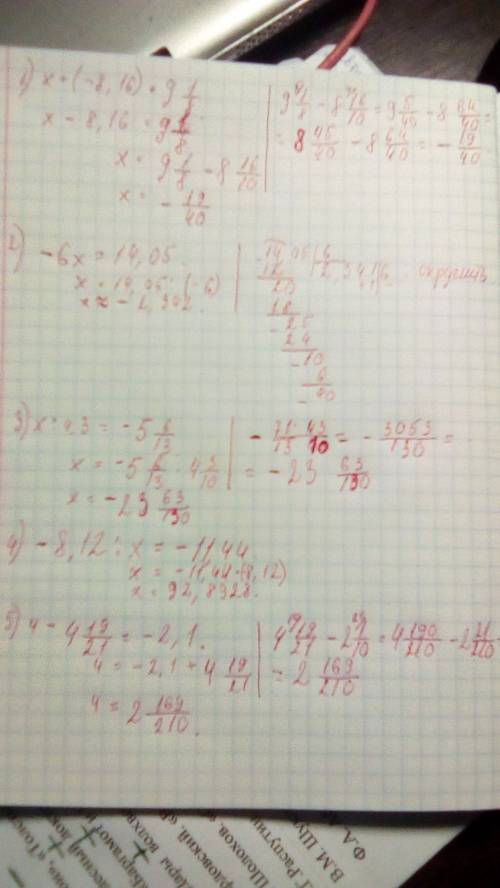 1) x + (-8,16) = 9 1/8
x - 8,16 = 9 1/8
x = 9 1/8 - 8 16/10
x = - 19/40
9 1/8 - 8 16/10 = 9 5/40 - 8 64/40 =
= 8 45/40 - 8 64/40 = - 19/40
2) -6x = 14,05
x = 14,05 : (-6)
x ≈ - 2,342.
14,05 | 6
12 2,3416 округлить
20
18
- 25
24
- 10
6
- 40
3) x : 4,3 = -5 6/13
x = -5 6/13 · 4 3/10
x = -23 63/130
- 71·43/13 10 = - 3053/130 =
= -23 63/130
4) -8,12 : x = -11,44
x = -11,44·(8,12)
x = 92,8928.
5) y - 4 19/21 = -2,1.
y = -2,1 + 4 19/21
y = 2 169/210.
4 19/21 - 2 1/10 = 4 190/210 - 2 21/210
= 2 169/210
Ф.А.
В.М. Шу
Г. Распутин
Шолохов.
рдовский.